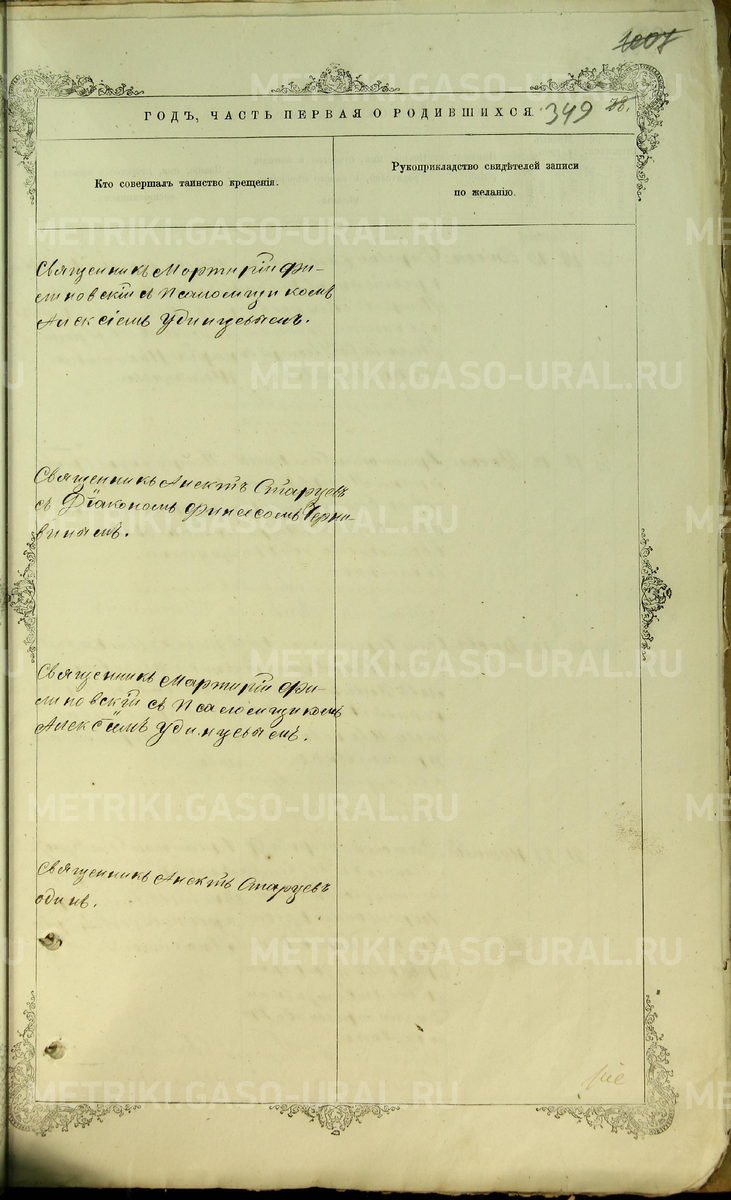 1007
ГОДЪ, ЧАСТЬ ПЕРВАЯ О РОДИВШИХСЯ. 349
Кто совершалъ таинство крещенія.
Рукоприкладство свидѣтелей записи
по желанію.
Священникъ Мартирій Фи-
липовскій съ Псаломщикомъ
Алексіемъ Удинцевымъ.
Священникъ Анектъ Старцевъ
съ Діакономъ Финеесомъ Черня-
виным.
Священникъ Мартирій Фи-
липовскій съ Псаломщикомъ
Алексіемъ Удинцевымъ.
Священникъ Анектъ Старцевъ
одинъ.
METRIKI.GASO-URAL.RU